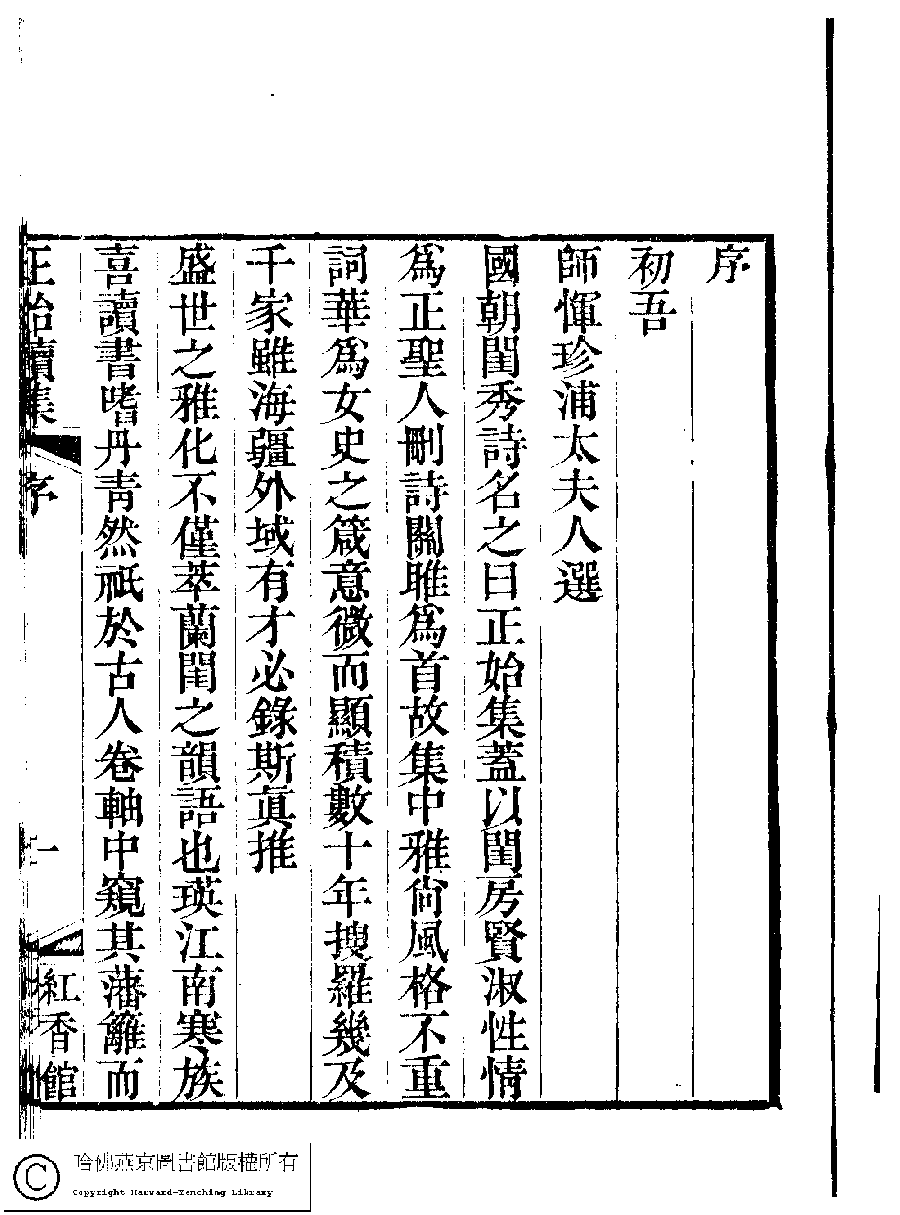 序
初吾
師惲珍浦太夫人選
國朝閨秀詩名之曰正始集蓋以閨房賢淑性情
爲正聖人刪詩關雎爲首故集中雅尙風格不重
詞華爲女史之箴意微而顯積數十年搜羅幾及
千家雖海疆外域有才必錄斯眞推
盛世之雅化不僅萃蘭閨之韻語也瑛江南寒族
喜讀書嗜丹靑然祇於古人卷軸中窺其藩籬而
正始續集 序 一 紅香館
哈佛燕京圖書館版權所有
Copyright Harvard-Yenching Library